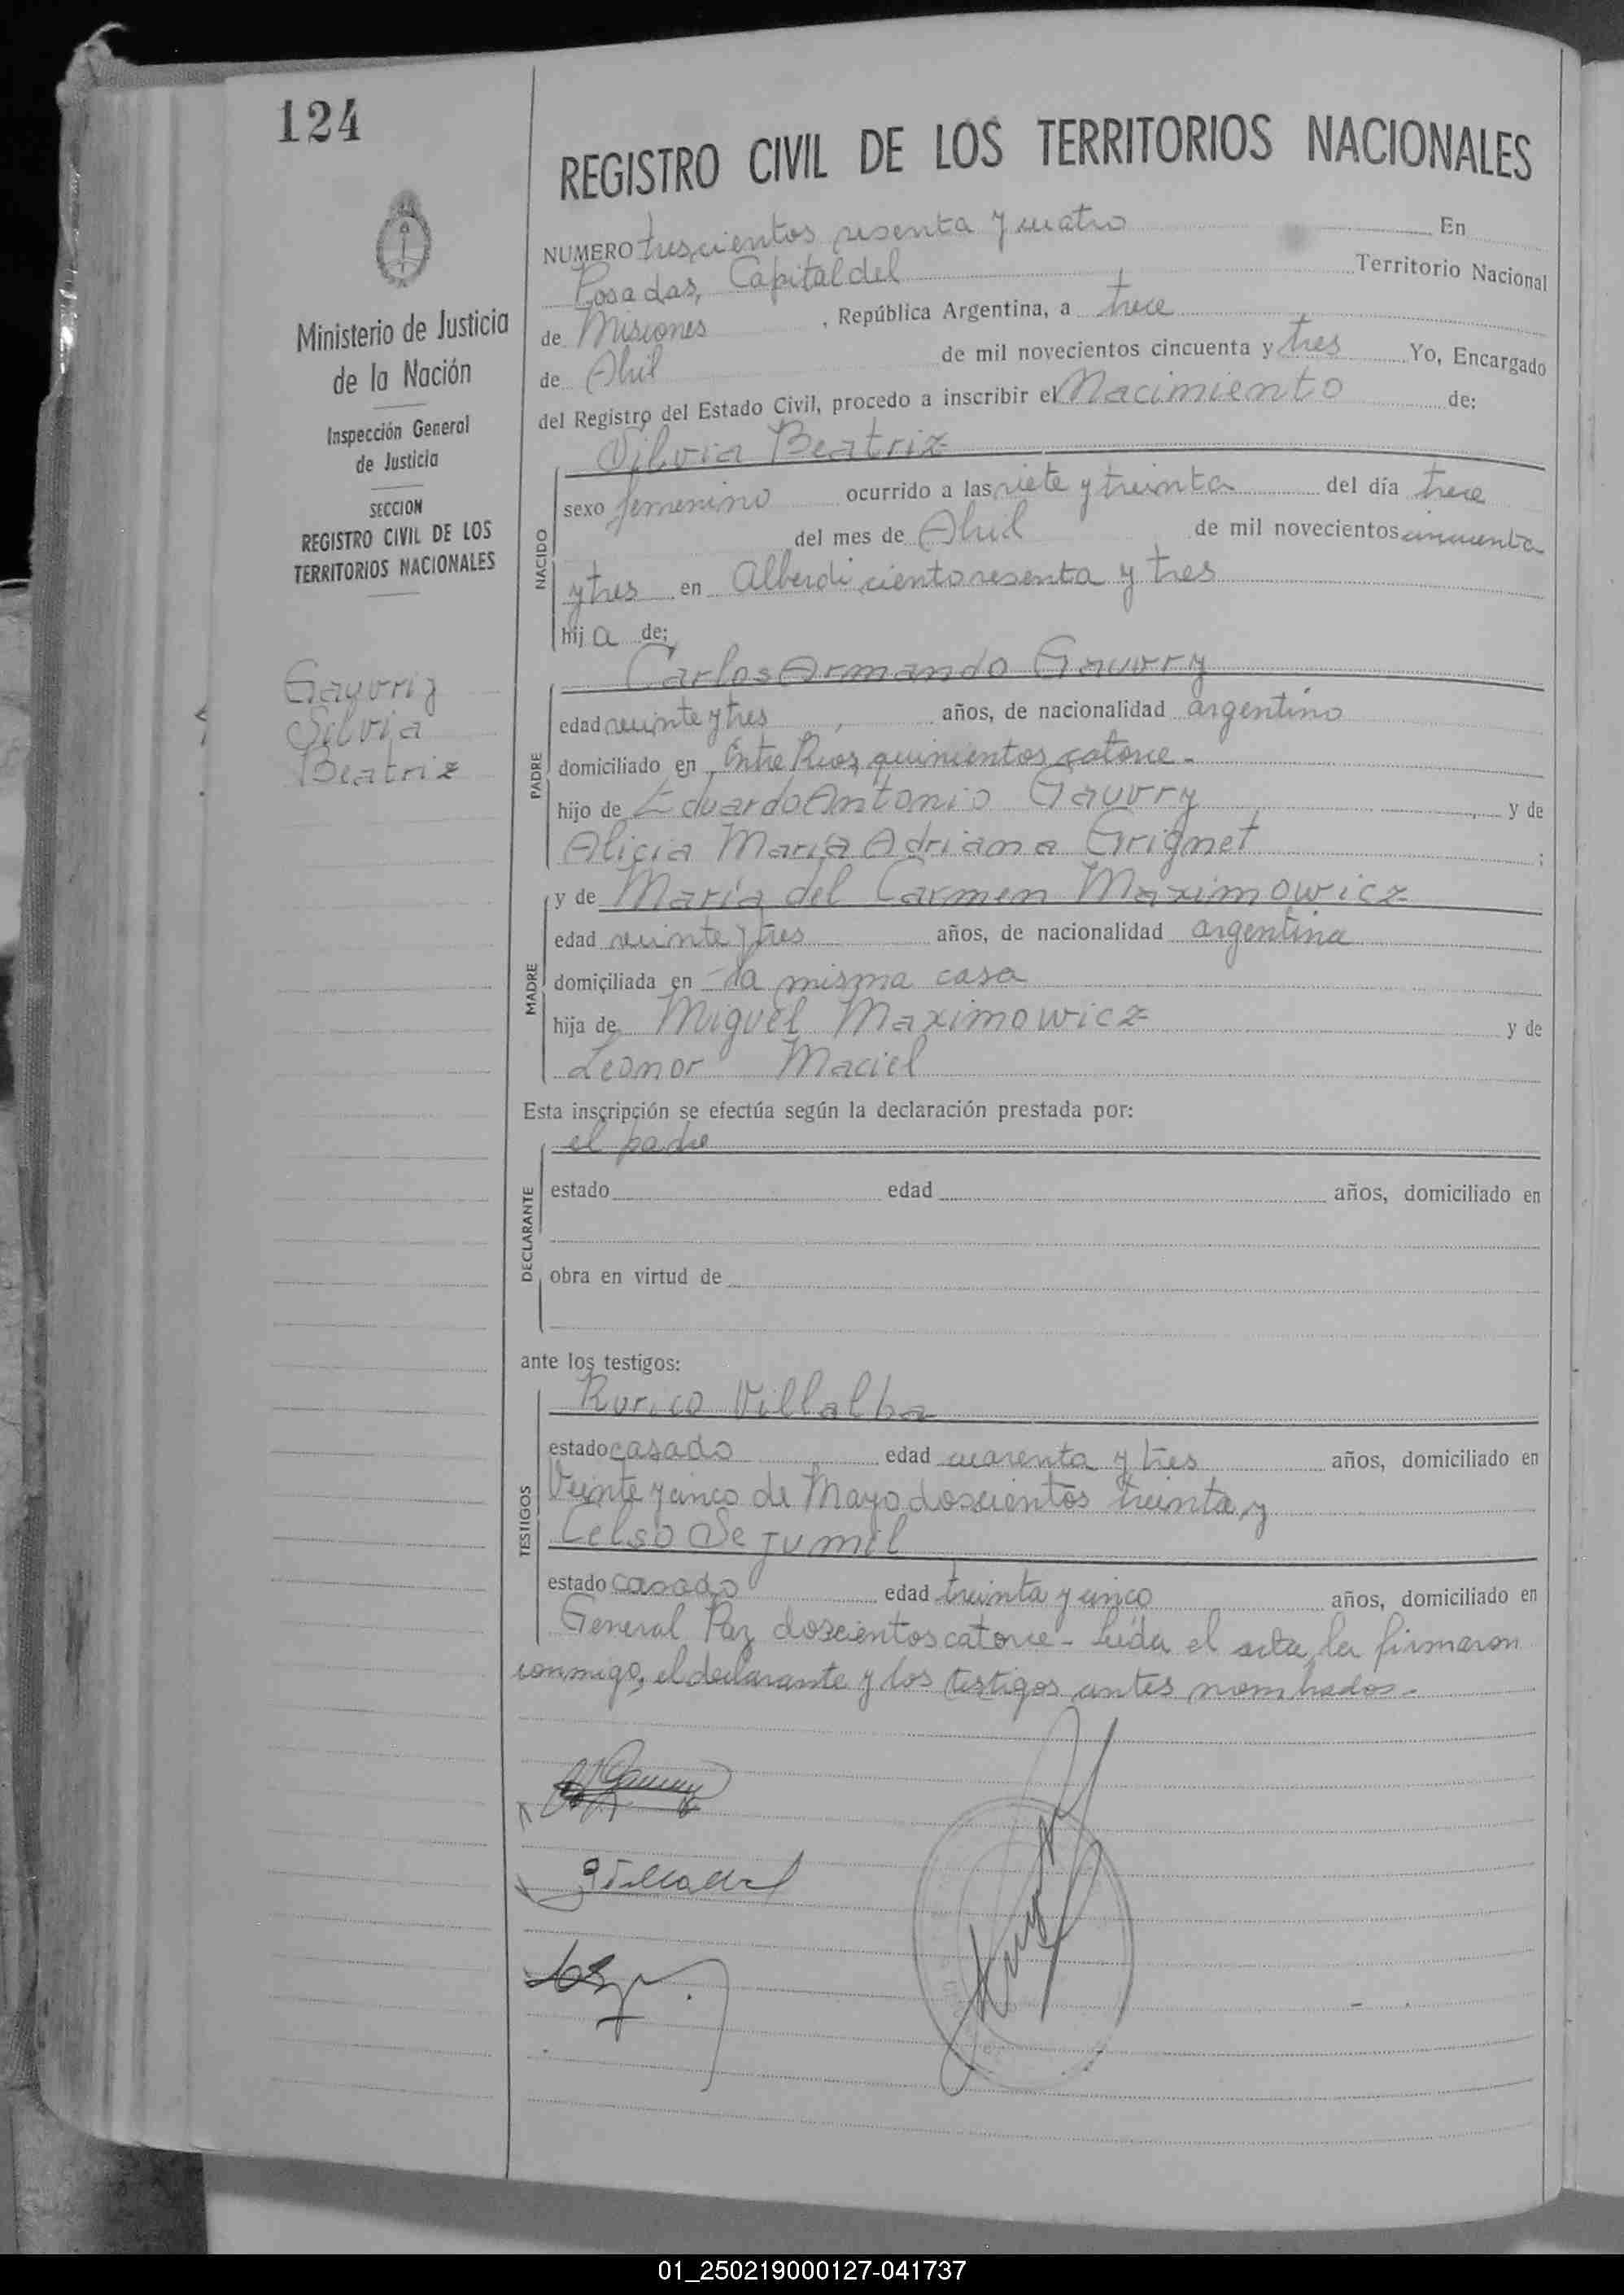 124
REGISTRO CIVIL DE LOS TERRITORIOS NACIONALES
Ministerio de Justicia
de la Nación
Inspección General
de Justicia
SECCION
REGISTRO CIVIL DE LOS
TERRITORIOS NACIONALES
Silvia
Beatriz
NUMERO trescientos sesenta y cuatro En
Posadas, Capital del Territorio Nacional
de Misiones, República Argentina, a trece
de Abril de mil novecientos cincuenta y tres Yo, Encargado
del Registro del Estado Civil, procedo a inscribir el Nacimiento de:
Silvia Beatriz
NACIDO
sexo femenino ocurrido a las siete y treinta del día trece
del mes de Abril de mil novecientos cincuenta
y tres en Alberdi ciento sesenta y tres
hija de:
Carlos Armando Gauvry
PADRE
edad veinte y tres años, de nacionalidad argentino
domiciliado en Entre Rios, quinientos catorce.-
hijo de Eduardo Antonio Gauvry y de
Alicia María Adriana Grignet ;
MADRE
y de María del Carmen Maximowicz
edad veinte y tres años, de nacionalidad argentina
domiciliada en la misma casa
hija de Miguel Maximowicz y de
Leonor Maciel
Esta inscripción se efectúa según la declaración prestada por:
el padre
DECLARANTE
estado edad años, domiciliado en
obra en virtud de
ante los testigos:
TESTIGOS
Rurico Villalba
estado casado edad cuarenta y tres años, domiciliado en
Veinte y cinco de Mayo doscientos treinta, y
Celso Segumil
estado casado edad treinta y cinco años, domiciliado en
General Paz doscientos catorce - Leída el acta, la firmaron
conmigo, el declarante y los testigos antes nombrados.-
01_250219000127-041737